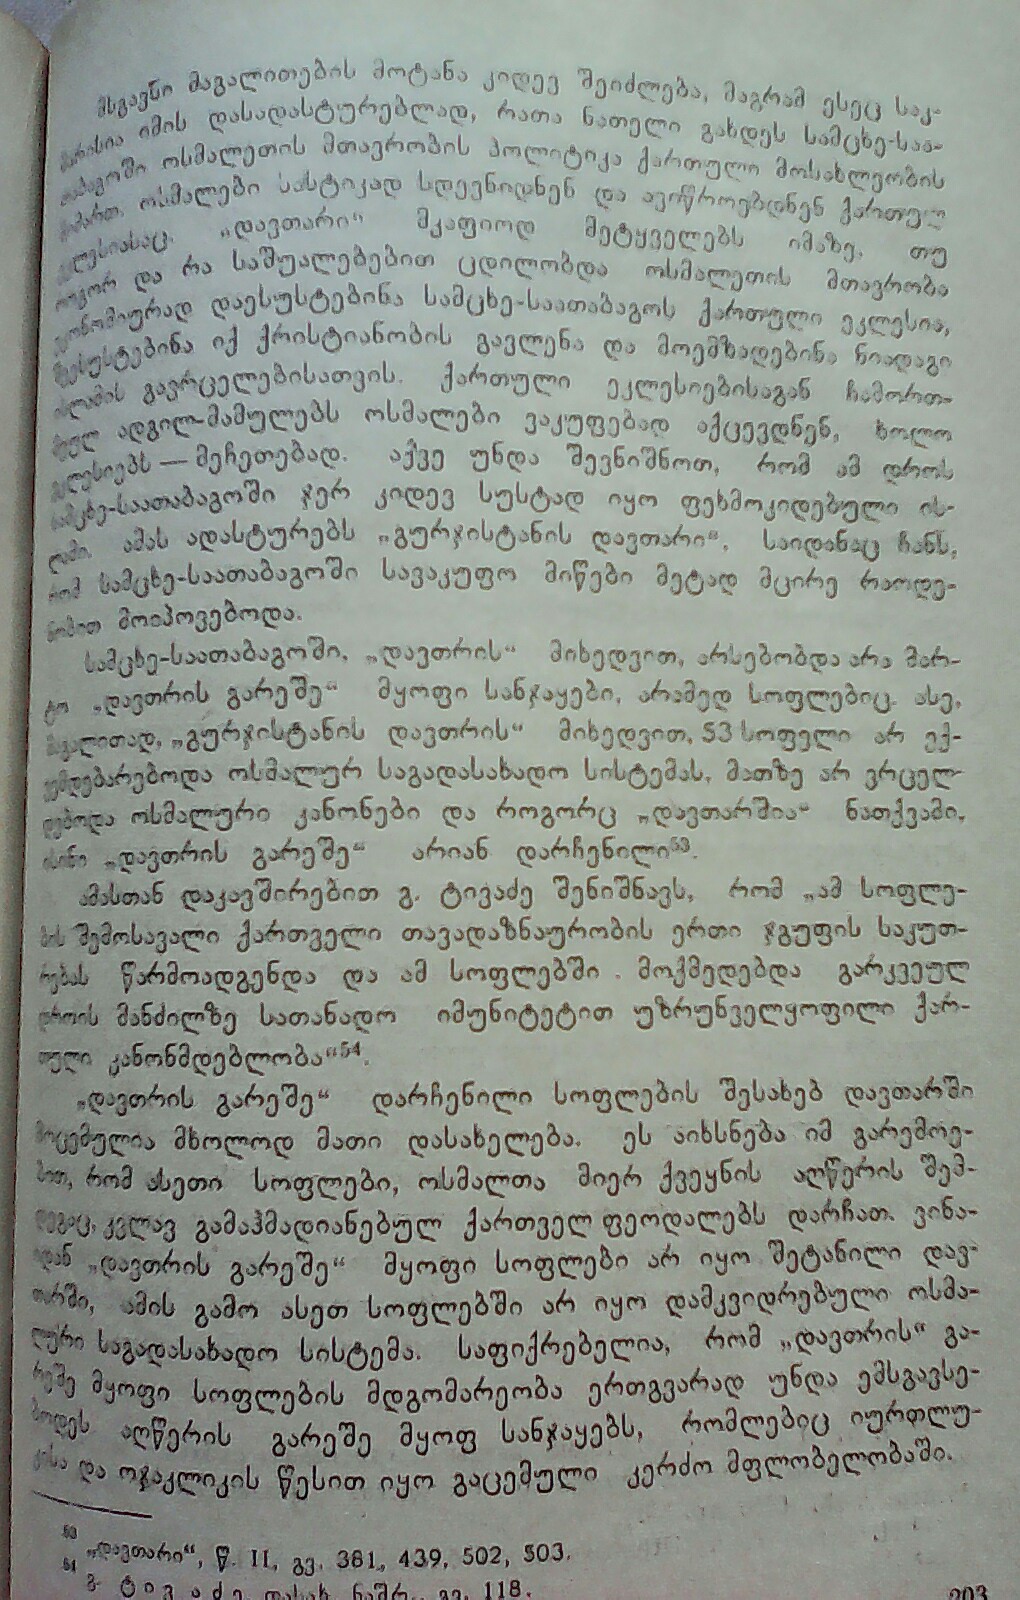 მსგავსი მაგალითების მოტანა კიდევ შეიძლება, მაგრამ ესეც საკ-
მარისია იმის დასადასტურებლად, რათა ნათელი გახდეს სამცხე-საა-
თაბაგოში ოსმალეთის მთავრობის პოლიტიკა ქართული მოსახლეობის
მიმართ. ოსმალები სასტიკად სდევნიდნენ და ავიწროებდნენ ქართულ
ეკლესიასაც. „დავთარი“ მკაფიოდ მეტყველებს იმაზე, თუ
როგორ და რა საშუალებებით ცდილობდა ოსმალეთის მთავრობა
ეკონომიურად დაესუსტებინა სამცხე-საათაბაგოს ქართული ეკლესია,
შეესუსტებინა იქ ქრისტიანობის გავლენა და მოემზადებინა ნიადაგი
ისლამის გავრცელებისათვის. ქართული ეკლესიებისაგან ჩამორთ-
მეულ ადგილ-მამულებს ოსმალები ვაკუფებად აქცევდნენ, ხოლო
ეკლესიებს — მეჩეთებად. აქვე უნდა შევნიშნოთ, რომ ამ დროს
სამცხე-საათაბაგოში ჯერ კიდევ სუსტად იყო ფეხმოკიდებული ის-
ლამი. ამას ადასტურებს „გურჯისტანის დავთარი“, საიდანაც ჩანს,
რომ სამცხე-საათაბაგოში სავაკუფო მიწები მეტად მცირე რაოდე-
ნობით მოიპოვებოდა.
სამცხე-საათაბაგოში, „დავთრის“ მიხედვით, არსებობდა არა მარ-
ტო „დავთრის გარეშე“ მყოფი სანჯაყები, არამედ სოფლებიც. ასე,
მაგალითად, „გურჯისტანის დავთრის“ მიხედვით, 53 სოფელი არ ექ-
ვემდებარებოდა ოსმალურ საგადასახადო სისტემას, მათზე არ ვრცელ-
დებოდა ოსმალური კანონები და როგორც „დავთარშია“ ნათქვამი,
ისინი „დავთრის გარეშე“ არიან დარჩენილი⁵³.
ამასთან დაკავშირებით გ. ტივაძე შენიშნავს, რომ „ამ სოფლე-
ბის შემოსავალი ქართველი თავადაზნაურობის ერთი ჯგუფის საკუთ-
რებას წარმოადგენდა და ამ სოფლებში მოქმედებდა გარკვეულ
დროის მანძილზე სათანადო იმუნიტეტით უზრუნველყოფილი ქარ-
თული კანონმდებლობა“⁵⁴.
„დავთრის გარეშე“ დარჩენილი სოფლების შესახებ დავთარში
მოცემულია მხოლოდ მათი დასახელება. ეს აიხსნება იმ გარემოე-
ბით, რომ ასეთი სოფლები, ოსმალთა მიერ ქვეყნის აღწერის შემ-
დეგაც, კვლავ გამაჰმადიანებულ ქართველ ფეოდალებს დარჩათ. ვინა-
იდან „დავთრის გარეშე“ მყოფი სოფლები არ იყო შეტანილი დავ-
თარში, ამის გამო ასეთ სოფლებში არ იყო დამკვიდრებული ოსმა-
ლური საგადასახადო სისტემა. საფიქრებელია, რომ „დავთრის“ გა-
რეშე მყოფი სოფლების მდგომარეობა ერთგვარად უნდა ემსგავსე-
ბოდეს აღწერის გარეშე მყოფ სანჯაყებს, რომლებიც იურთლუ-
კისა და ოჯაკლიკის წესით იყო გაცემული კერძო მფლობელობაში.
⁵³ „დავთარი“, წ. II, გვ. 381, 439, 502, 503.
⁵⁴ გ. ტივაძე, დასახ. ნაშრ., გვ. 118.
203